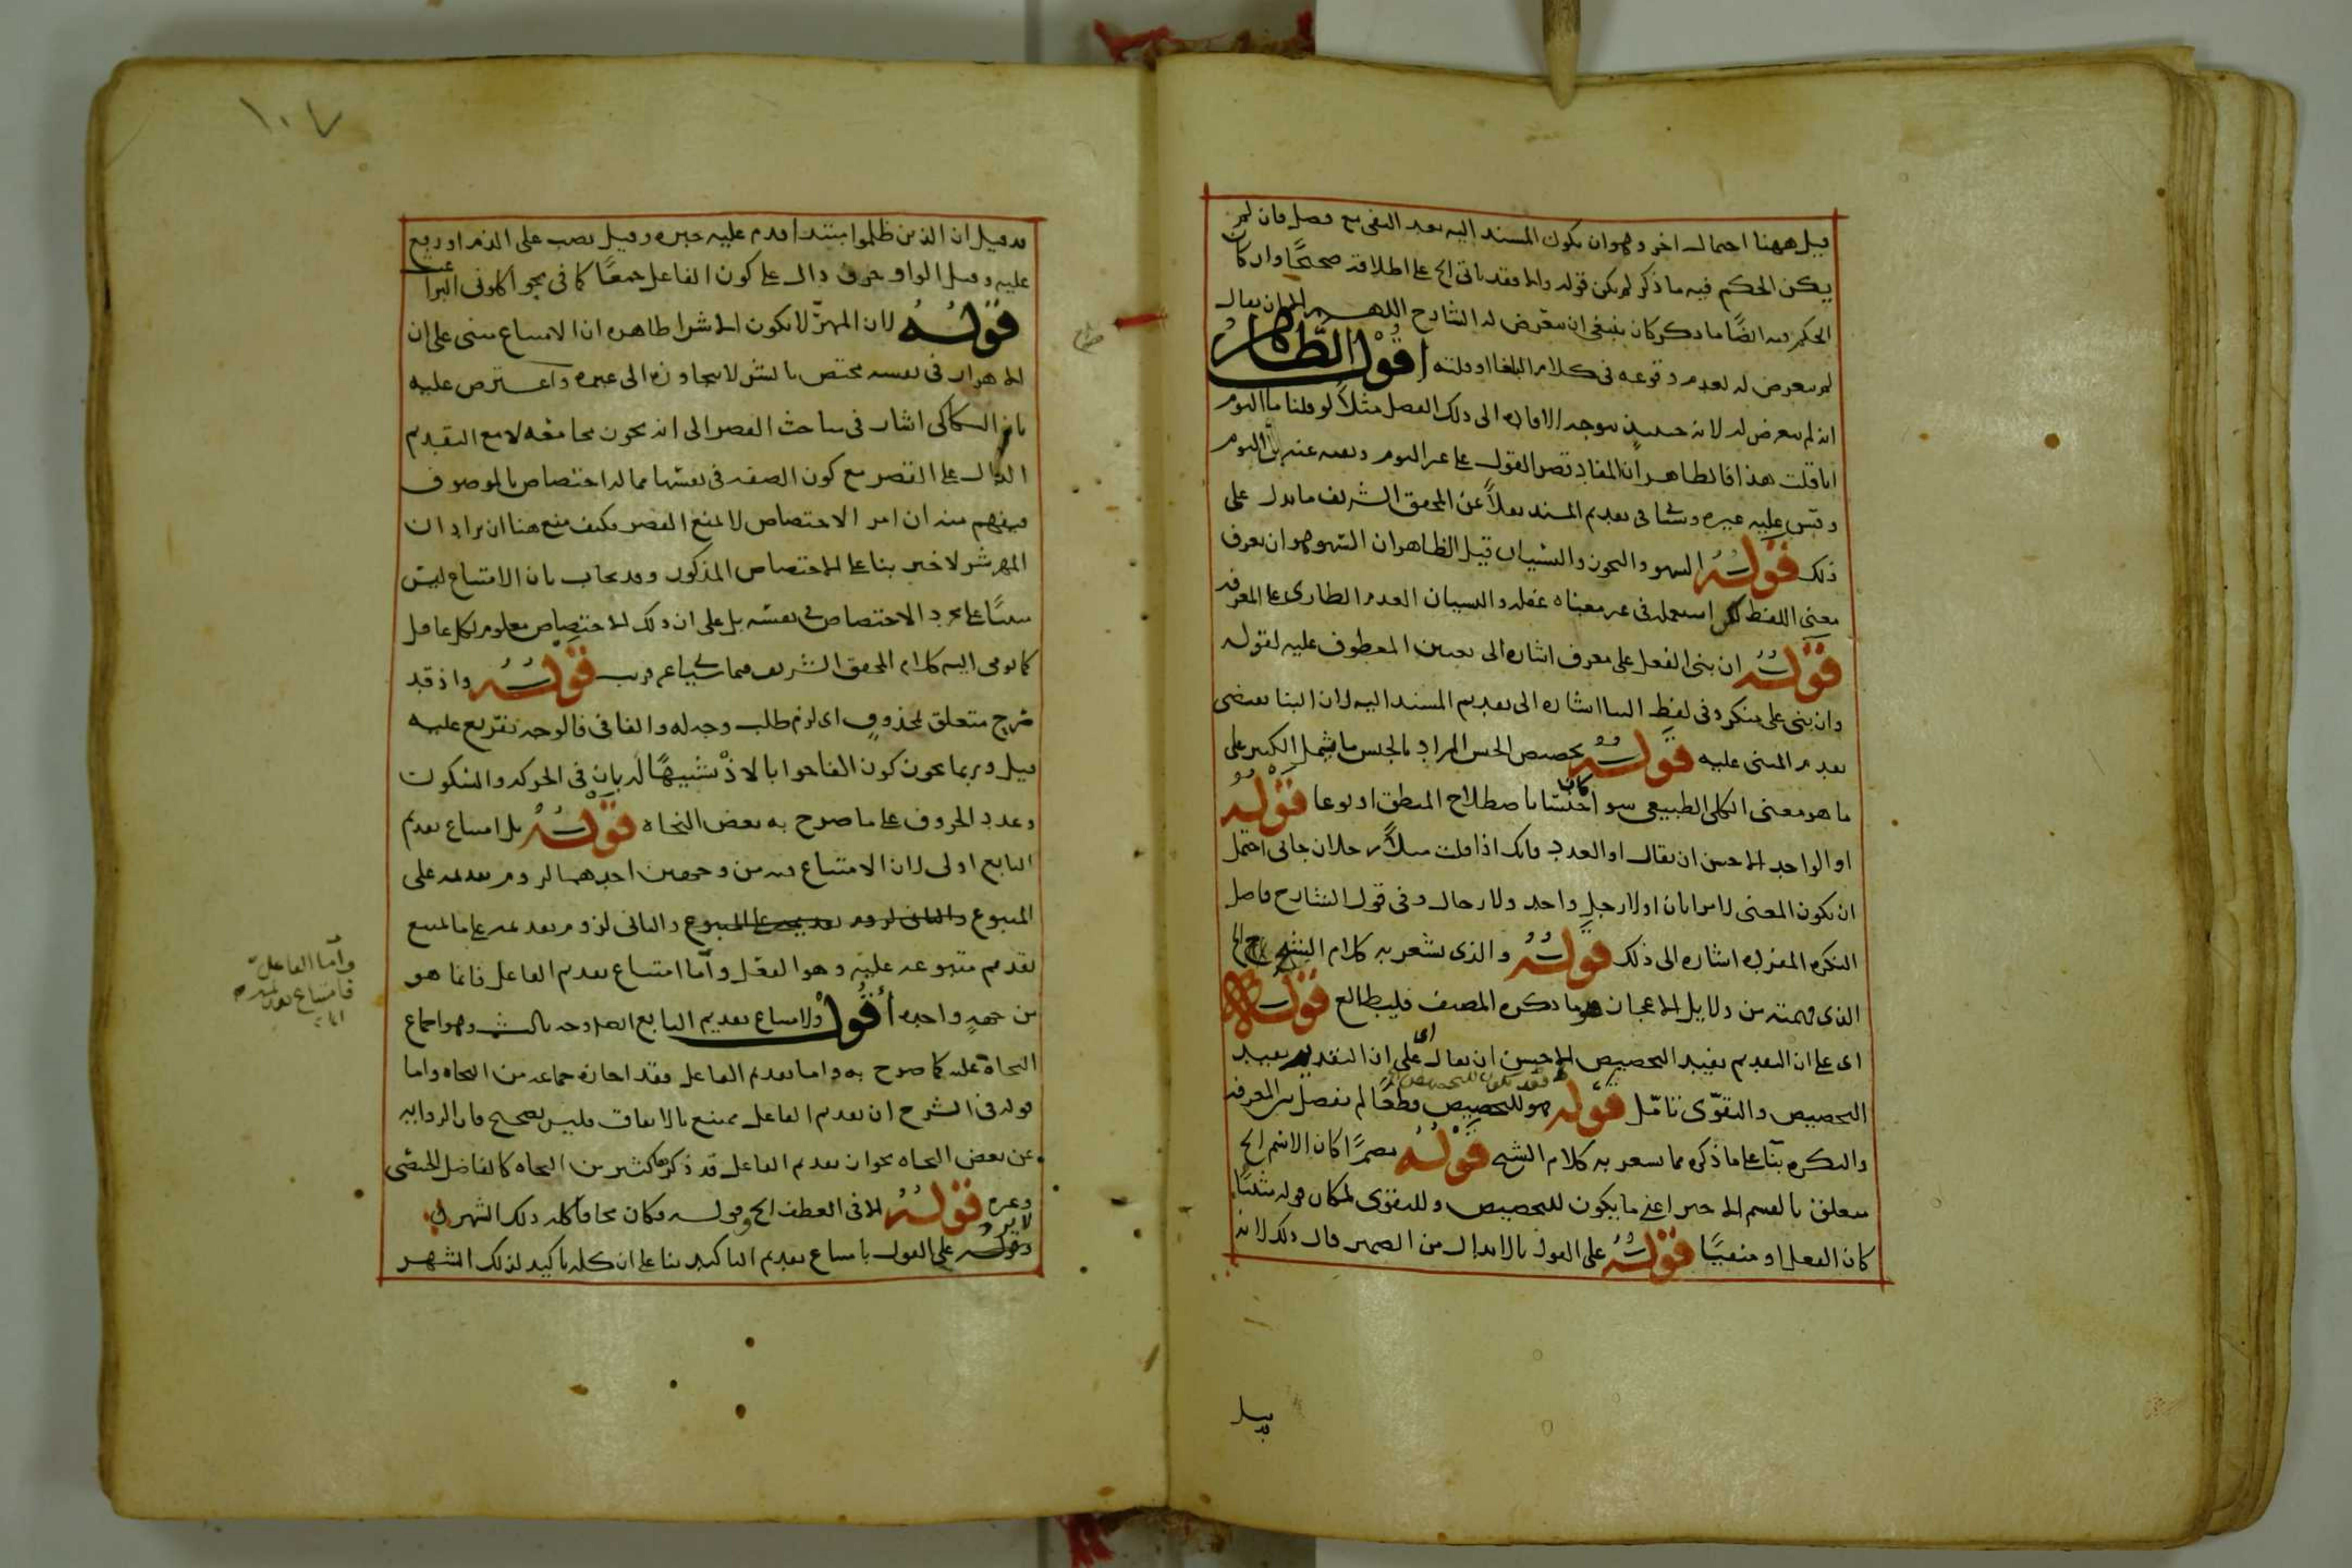 قيل ههنا احتمال اخر وهو ان يكون المسند اليه بعد النفى مع فصل فان لم
يكن الحكم فيه ما ذكر لم يكن قوله والا فقد ياتى الخ على اطلاقه صحيحًا وان كان
الحكم فيه ايضًا ما ذكر كان ينبغى ان يتعرض له الشارح اللهم الا ان يقال
لم يتعرض له لعدم وقوعه فى كلام البلغا او قلته اقول الظاهر
انه لم يتعرض له لانه حينئذ يتوجه الافاده الى ذلك الفصل مثلاً لو قلنا ما اليوم
انا قلت هذا فالظاهر ان المفاد قصر القول على غير اليوم ونفيه عن اليوم
وقس عليه غيره وسياتى فى تقديم المسند نقلاً عن المحقق الشريف ما يدل على
ذلك قوله السهو والتجوز والنسيان قيل الظاهر ان السهو هو ان يعرف
معنى اللفظ لكن استعمله فى غير معناه غفله والنسيان العدم الطارى على المعرفه
قوله ان بنى الفعل على معرف اشاره الى تعيين المعطوف عليه لقوله
وان بنى على منكر وفى لفظ البنا اشاره الى تقديم المسند اليه لان البنا يقتضى
تقدم المبنى عليه قوله تخصيص الجنس المراد بالجنس ما يشمل الكبير على
ما هو معنى الكلى الطبيعى سوا كان جنسًا باصطلاح المنطق او نوعا قوله
او الواحد الاحسن ان يقال او العدد فانك اذا قلت مثلاً رجلان جانى احتمل
ان يكون المعنى لا امراتان او لا رجل واحد ولا رجال وفى قول الشارح فاصل
النكره المفرده اشاره الى ذلك قوله والذى يشعر به كلام الشيخ الخ
الذى فهمته من دلايل الاعجاز هو ما ذكره المصنف فليطالع قوله
اى على ان التقديم يفيد التخصيص الاحسن ان يقال اى على ان التقديم يفيد
التخصيص والتقوى تامّل قوله فهو للتخصيص قطعًا لم يفصل بين المعرفه
والنكره بنآ على ما ذكره مما يشعر به كلام الشيخ قوله مضمرًا كان الاسم الخ
متعلق بالقسم الاخير اعنى ما يكون للتخصيص وللتقوى لمكان قوله مثبتًا
كان الفعل او منفيًا قوله على القول بالابدال من الضمير قال ذلك لانه
قد قيل
١٠٧
قد قيل ان الذين ظلموا مبتدا قدم عليه خبره وقيل نصب على الذم او رفع
عليه وقيل الواو حرف دال على كون الفاعل جمعًا كما فى نحو اكلونى البراغيث
قوله لان المهرّ لا يكون الا شرا ظاهره ان الامتناع مبنى على ان
الاهرار فى نفسه مختص بالشر لا يتجاوزه الى غيره واعترض عليه
بان السكاكى اشار فى مباحث القصر الى انه يجوز مجامعه لا مع التقديم
الدال على القصر مع كون الصفه فى نفسها مما له اختصاص بالموصوف
فيفهم منه ان امر الاختصاص لا يمنع القصر فكيف منع هنا ان يراد ان
المهر شر لا خير بنا على الاختصاص المذكور وقد يجاب بان الامتناع ليس
مبنيًا على مجرد الاختصاص فى نفسه بل على ان ذلك الاختصاص معلوم لكل عاقل
كما يومى اليه كلام المحقق الشريف فيما سياتى عن قريب قوله واذ قد
صرح متعلق بمحذوف اى لزم طلب وجه له والفا فى فالوجه تفريع عليه
قيل وربما يجوز كون الفا جوابا لاذْ تشبيهًا له بان فى الحركه والسكون
وعدد الحروف على ما صرح به بعض النحاه قوله بل امتناع تقديم
التابع اولى لان الامتناع فيه من وجهين احدهما لزوم تقدمه على
المتبوع والثانى لزوم تقديمه على المتبوع والثانى لزوم تقديمه على ما يمتنع
تقديم متبوعه عليه وهو الفعل وآمّا امتناع تقديم الفاعل فانما هو
من جهةٍ واحده اقول ولامتناع تقديم التابع وهو اجماع
النحاة عليه كما صرح به واما تقديم الفاعل فقد اجازه جماعه من النحاه واما
قوله فى الشرح ان تقديم الفاعل ممتنع بالاتفاق فليس بصحيح فان الروايه
عن بعض النحاه بجواز تقديم الفاعل قد ذكرها كثير من النحاه كالفاضل
وغيره قوله الا فى العطف الخ وقوله فكان محاقا كله ذلك الشهر
لا يرد على القول بامتناع تقديم التاكيد بنا على ان كله تاكيد لذلك الشهر
وآمّا الفاعل
فامتناع تقديمه